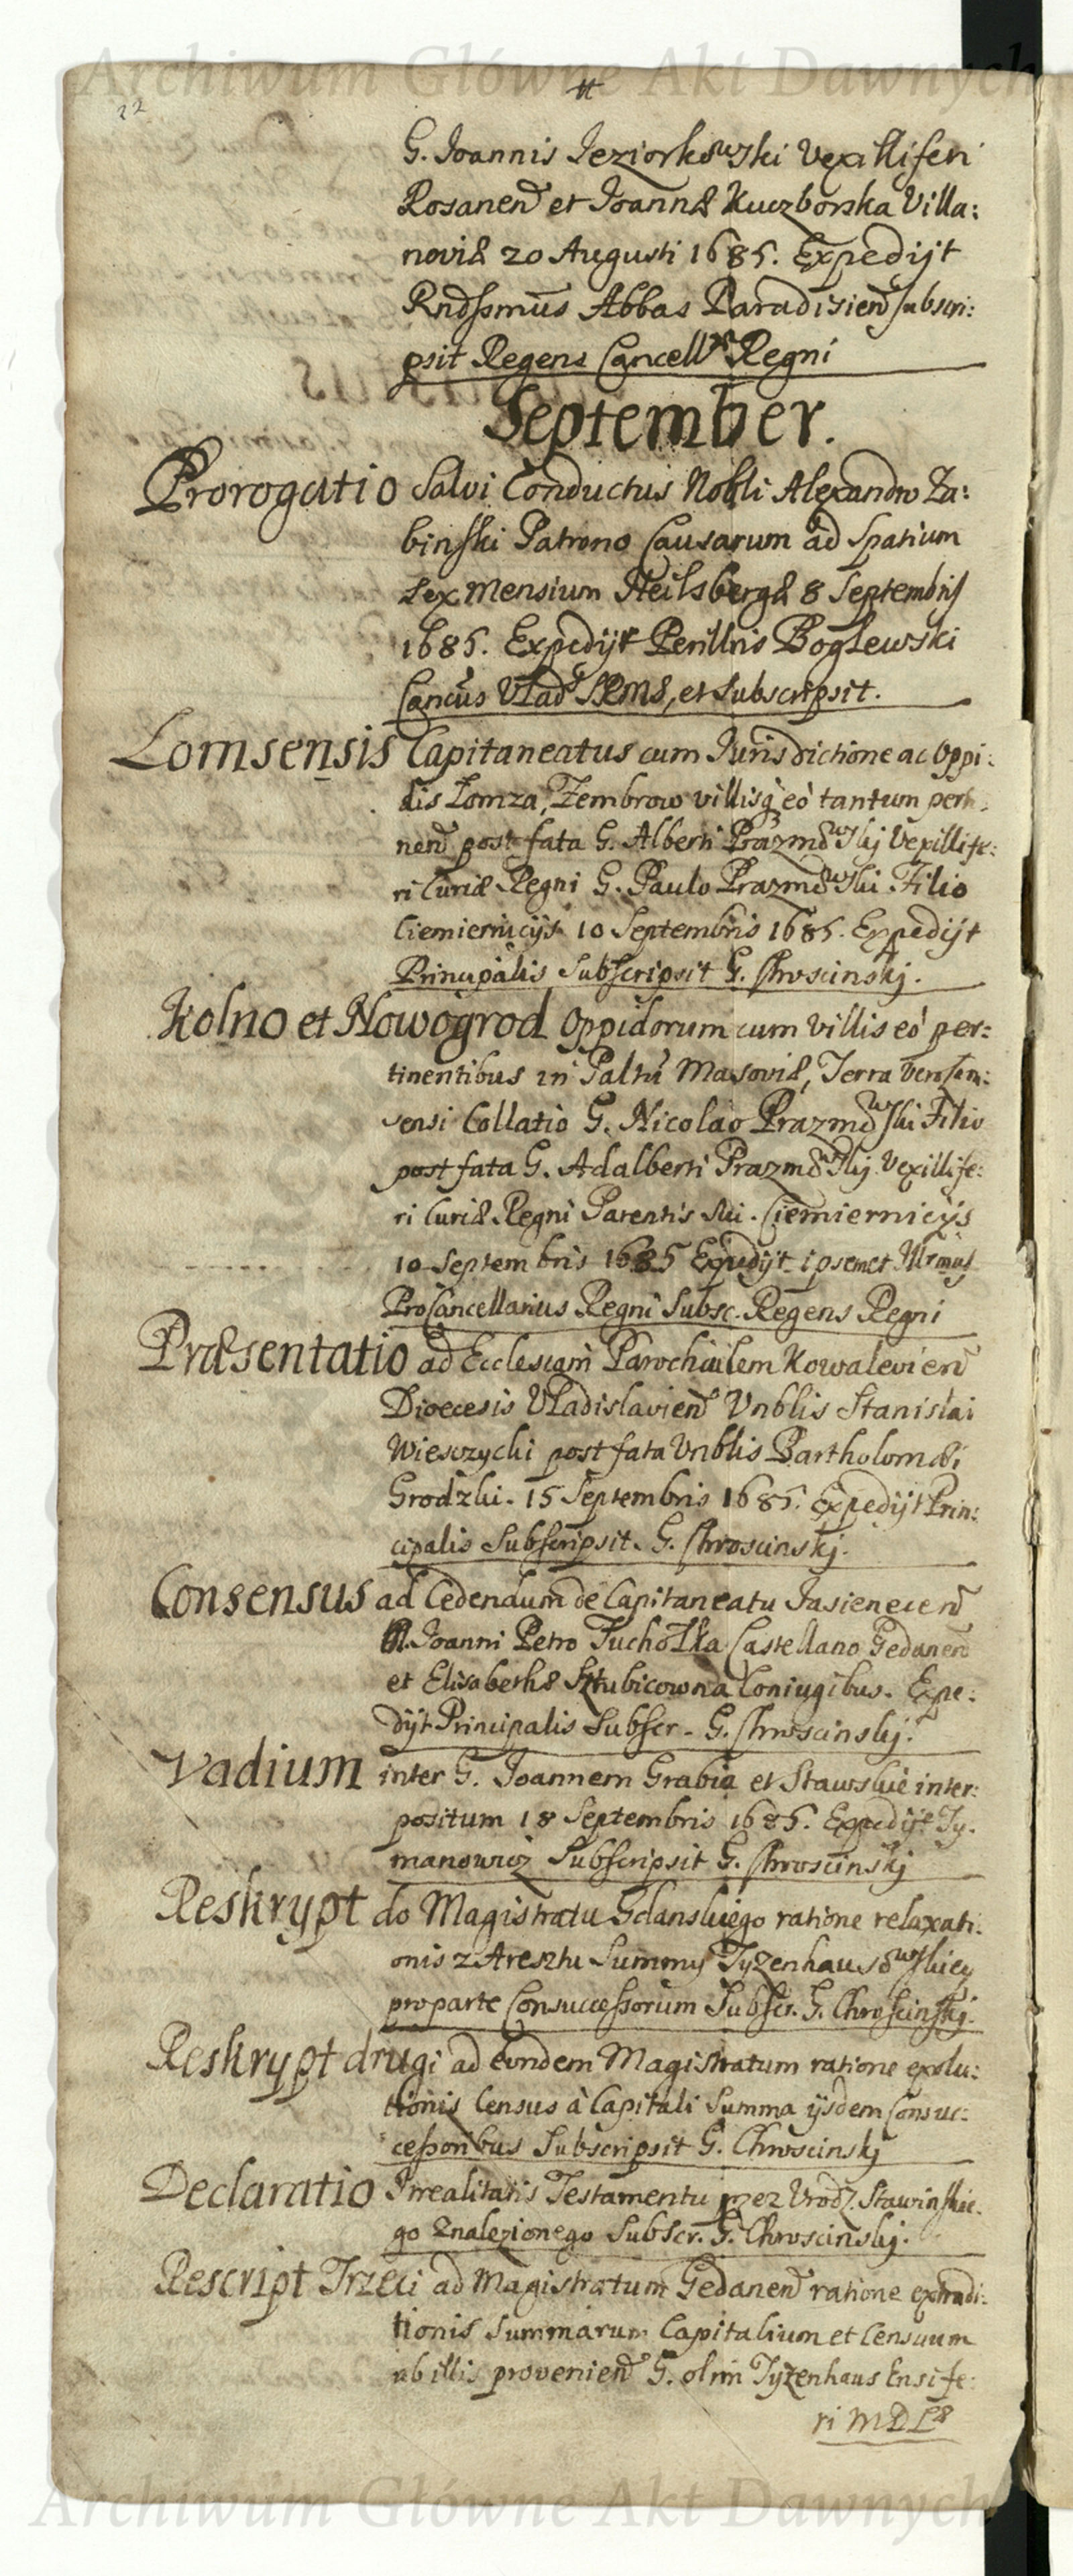 Archiwum Główne Akt Dawnych
22
G. Joannis Jeziorkowski Vexilliferi
Rosanen et Joannæ Kuczborska Villa:
noviæ 20 Augusti 1685. Expedijt
Rndssmus Abbas Paradisien subscri:
psit Regens Cancellr Regni
September.
Prorogatio Salvi Conductus Nobli Alexandro Za:
binski Patrono Causarum ad Spatium
Sex Mensium Heilsbergæ 8 Septembris
1685. Expedijt Perillris Boglewski
Cancus Vlad et Subscripsit.
Lomsensis Capitaneatus cum Jurisdictione ac Oppi:
dis Lomza, Zembrow villisq eo tantum perti
nen post fata G. Alberti Prazmowskj Vexillife:
ri Curiæ Regni G. Paulo Prazmowski Filio
Ciemiernicijs 10 Septembris 1685. Expedijt
Principalis Subscripsit G. Chroscinskj.
Kolno et Nowogrod Oppidorum cum Villis eo per:
tinentibus in Paltu Masoviæ, Terra vero Lom:
sensi Collatio G. Nicolao Prazmowski Filio
post fata G. Adalberti Prazmowskj Vexillife:
ri Curiæ Regni Parentis Sui. Ciemiernicijs
10 Septembris 1685 Expedijt ipsemet Illrmus
ProCancellarius Regni Subsc. Regens Regni
Præsentatio ad Ecclesiam Parochialem Kowalevien
Dioecesis Vladislavien Vnblis Stanislai
Wieszycki post fata Vnblis Bartholomæi
Grodzki. 15 Septembris 1685. Expedijt Prin:
cipalis Subscripsit. G. Chroscinskj.
Consensus ad Cedendum de Capitaneatu Jasienecen
M. Joanni Petro Tuchołka Castellano Gedanen
et Elisabethæ Coniugibus. Expe:
dijt Principalis Subscr. G. Chroscinskj.
Vadium inter G. Joannem Grabia et Stawskie inter:
positum 18 Septembris 1685. Expedijt Ty.
manowicz Subscripsit G. Chroscinskj
Reskrypt do Magistratu Gdanskiego ratione relaxati.
onis z Aresztu Summy Tyzenhausowskiey
pro parte Consuccessorum Subscr. G. Chroscinskj.
Reskrypt drugi ad Eundem Magistratum ratione exolu:
tionis Census à Capitali Summa ijsdem Consuc:
cessoribus Subscripsit G. Chroscinskj
Declaratio Irrealitatis Testamentu przez Vrodz. Stawinskie.
go Znalezionego Subscr. G. Chroscinskj.
Rescript Trzeci ad Magistratum Gedanen ratione extradi:
tionis Summarum Capitalium et Censuum
ab illis provenien G. olim Tyzenhaus Ensife:
ri M D L
Archiwum Główne Akt Dawnych